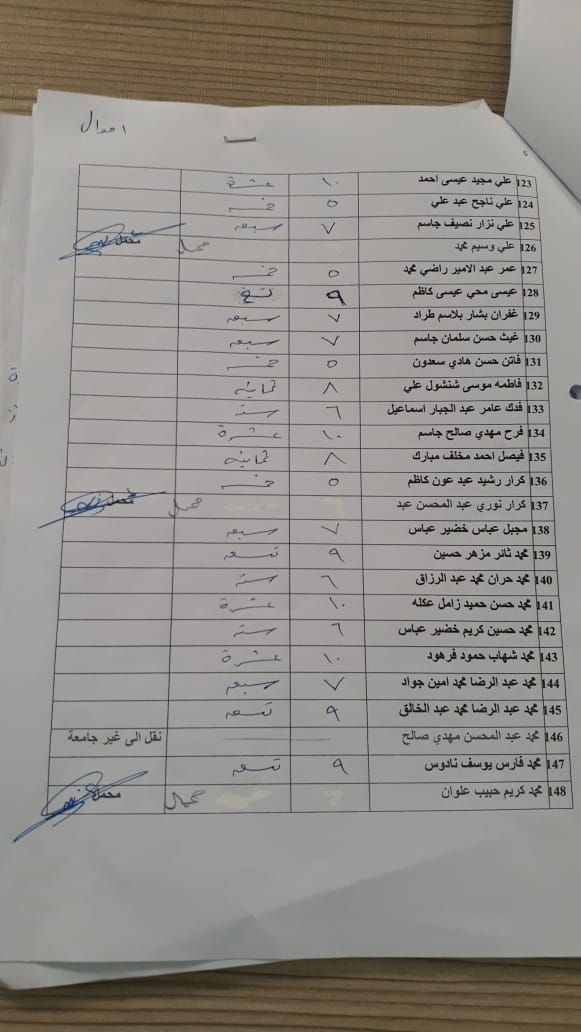 احوال
6
123 علي مجيد عيسى احمد ١٠ عشرة
124 علي ناجح عبد علي ٥ خمسه
125 علي نزار نصيف جاسم ٧ سبعه
126 علي وسيم محمد محمل محمل
127 عمر عبد الامير راضي محمد ٥ خمسه
128 عيسى محي عيسى كاظم ٩ تسع
129 غفران بشار بلاسم طراد ٧ سبعه
130 غيث حسن سلمان جاسم ٧ سبعه
131 فاتن حسن هادي سعدون ٥ خمسه
132 فاطمه موسى شنشول علي ٨ ثمانيه
133 فدك عامر عبد الجبار اسماعيل ٦ سته
134 فرح مهدي صالح جاسم ١٠ عشرة
135 فيصل احمد مخلف مبارك ٨ ثمانيه
136 كرار رشيد عبد عون كاظم ٥ خمسه
137 كرار نوري عبد المحسن عبد محمل محمل
138 مجبل عباس خضير عباس ٧ سبعه
139 محمد ثائر مزهر حسين ٩ تسعه
140 محمد حران محمد عبد الرزاق ٦ سته
141 محمد حسن حميد زامل عكله ١٠ عشرة
142 محمد حسين كريم خضير عباس ٦ سته
143 محمد شهاب حمود فرهود ١٠ عشرة
144 محمد عبد الرضا محمد امين جواد ٧ سبعه
145 محمد عبد الرضا محمد عبد الخالق ٩ تسعه
146 محمد عبد المحسن مهدي صالح نقل الى غير جامعة
147 محمد فارس يوسف نادوس ٩ تسعه
148 محمد كريم حبيب علوان محمل محمل